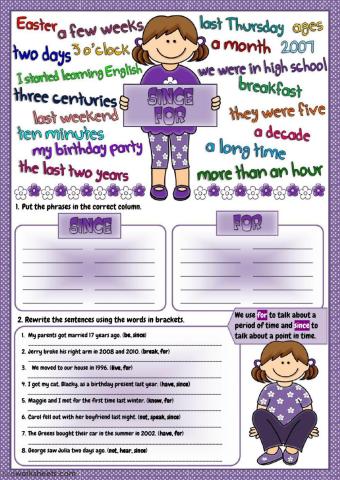 Easter a few weeks last Thursday ages
two days 3 o'clock a month 2007
I started learning English we were in high school
three centuries breakfast
last weekend they were five
ten minutes a decade
my birthday party a long time
the last two years more than an hour
SINCE
FOR
1. Put the phrases in the correct column.
SINCE FOR
2. Rewrite the sentences using the words in brackets.
We use for to talk about a
period of time and since to
talk about a point in time.
1. My parents got married 17 years ago. (be, since)
2. Jerry broke his right arm in 2008 and 2010. (break, for)
3. We moved to our house in 1996. (live, for)
4. I got my cat, Blacky, as a birthday present last year. (have, since)
5. Maggie and I met for the first time last winter. (know, for)
6. Carol fell out with her boyfriend last night. (not, speak, since)
7. The Greens bought their car in the summer in 2002. (have, for)
8. George saw Julia two days ago. (not, hear, since)